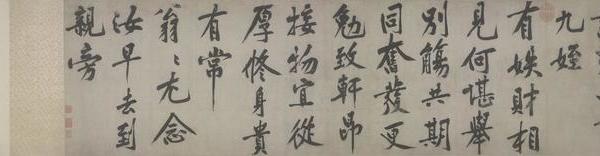 九姪
有娱财相
見何堪舉
別觴共期
同奮發更
勉致軒昂
接物宜從
厚修身貴
有常
翁〻尤念
汝早去到
親旁